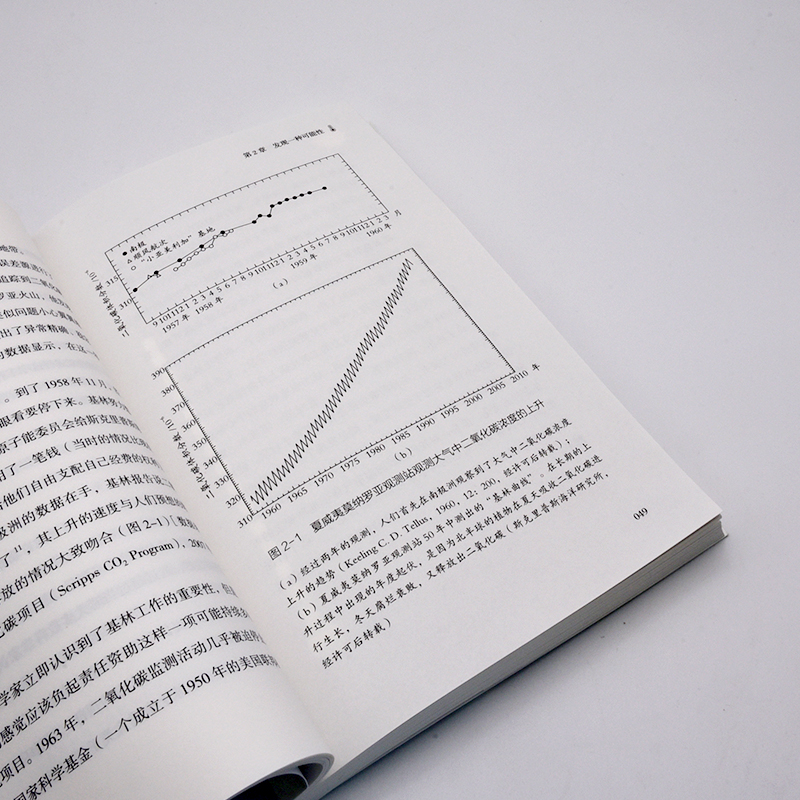 地带。
误差源进行
追踪到二氧化
罗亚火山，他
类似问题小心翼
出了异常精确、
的数据显示，在这一
。到了 1958 年 11 月，
眼看要停下来。基林努力
原子能委员会给斯克里普
用了一笔钱（当时的情况比
给他们自由支配自己经费的权
极洲的数据在手，基林报告说
了”，其上升的速度与人们预想
放的情况大致吻合（图 2-1）[数
碳项目（Scripps CO₂ Program），200
学家立即认识到了基林工作的重要性，但
感觉应该负起责任资助这样一项可能持续多
项目。1963 年，二氧化碳监测活动几乎被迫
国家科学基金（一个成立于 1950 年的美国联
第 2 章 发现一种可能性
南极
顺风航次
“小亚美利加”基地
315
310
二氧化碳体积分数(10⁻⁶)
9 10 11 12 1 2 3 4 5 6 7 8 9 10 11 12 1 2 3 4 5 6 7 8 9 10 11 12 1 2 3 月
1957 年 1958 年 1959 年 1960 年
(a)
390
380
370
360
350
340
330
320
310
二氧化碳体积分数(10⁻⁶)
1960 1965 1970 1975 1980 1985 1990 1995 2000 2005 2010 年
(b)
图 2-1 夏威夷莫纳罗亚观测站观测大气中二氧化碳浓度的上升
(a) 经过两年的观测，人们首先在南极洲观察到了大气中二氧化碳浓度
上升的趋势（Keeling C. D. Tellus, 1960, 12, 200, 经许可后转载）；
(b) 夏威夷莫纳罗亚观测站 50 年中测出的“基林曲线”。在长期的上
升过程中出现的年度起伏，是因为北半球的植物在夏天吸收二氧化碳进
行生长，冬天腐烂衰败，又释放出二氧化碳（斯克里普斯海洋研究所，
经许可后转载）
049